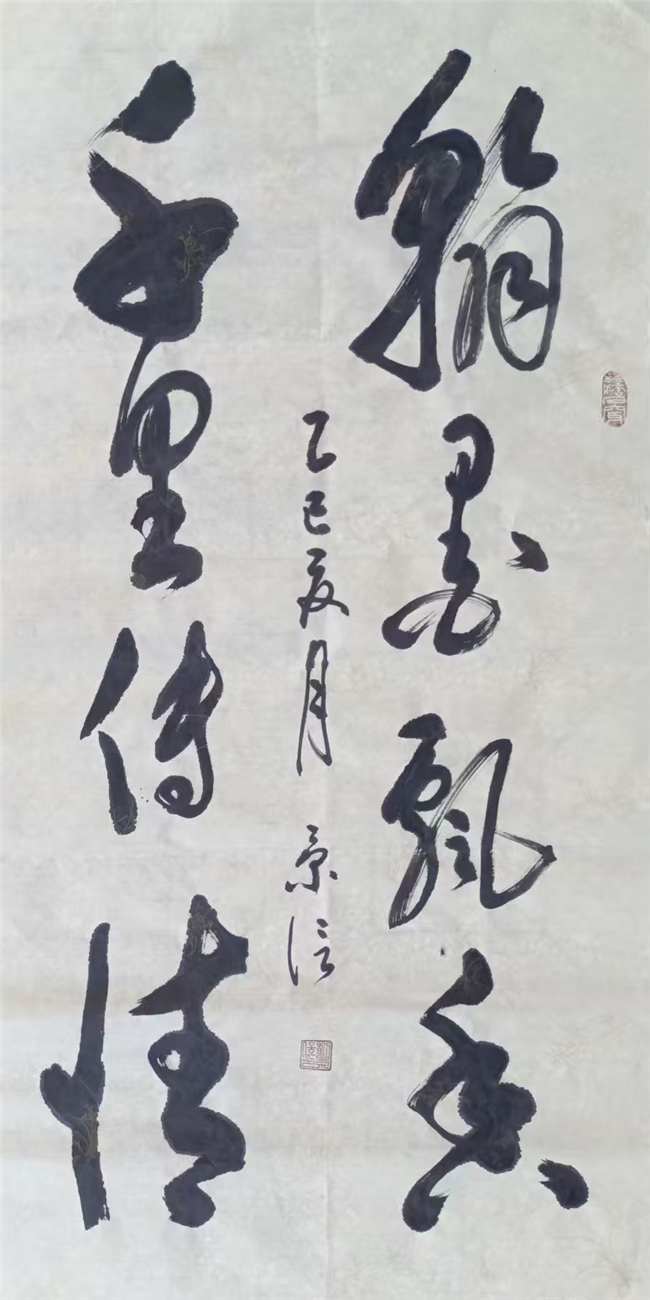 翰墨飘香
千里传情
乙巳夏月 景信